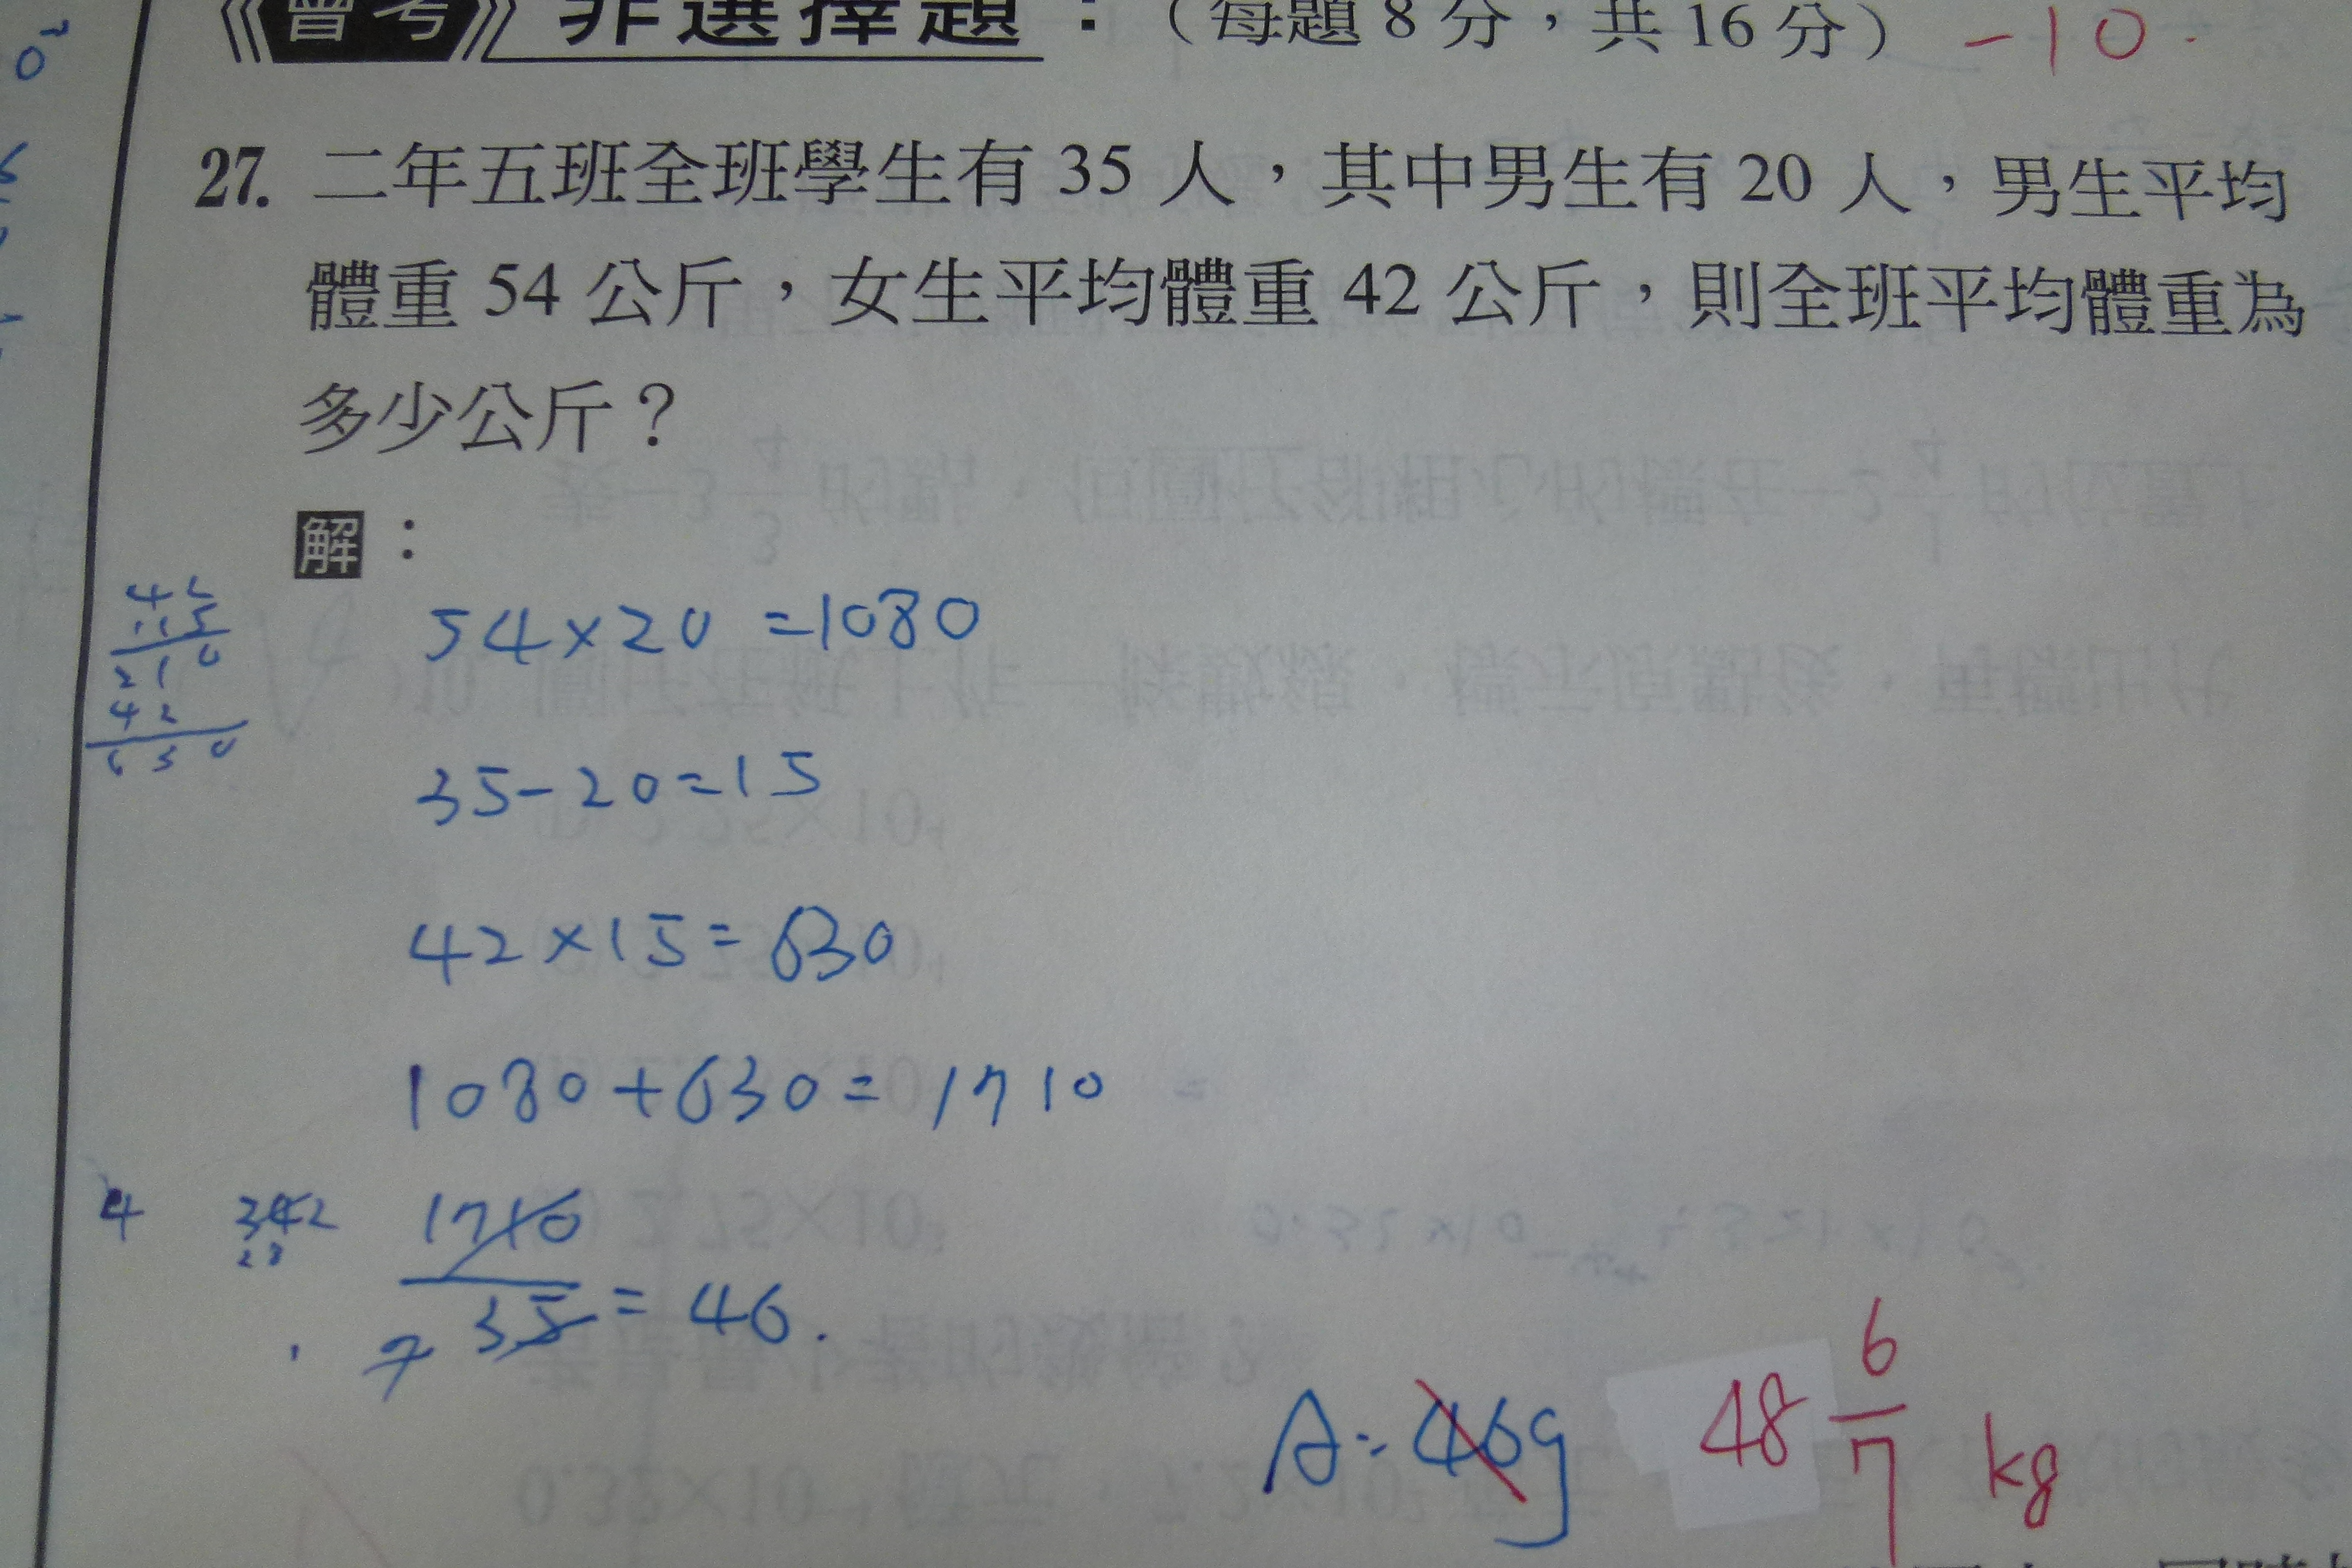 《會考》非選擇題：（每題 8 分，共 16 分） -10
27. 二年五班全班學生有 35 人，其中男生有 20 人，男生平均
體重 54 公斤，女生平均體重 42 公斤，則全班平均體重為
多少公斤？
解：
54×20=1080
35-20=15
42×15=630
1080+630=1710
4 342 1710
28
7 35 = 46.
A=46g 48 6/7 kg
42
15
210
42
630